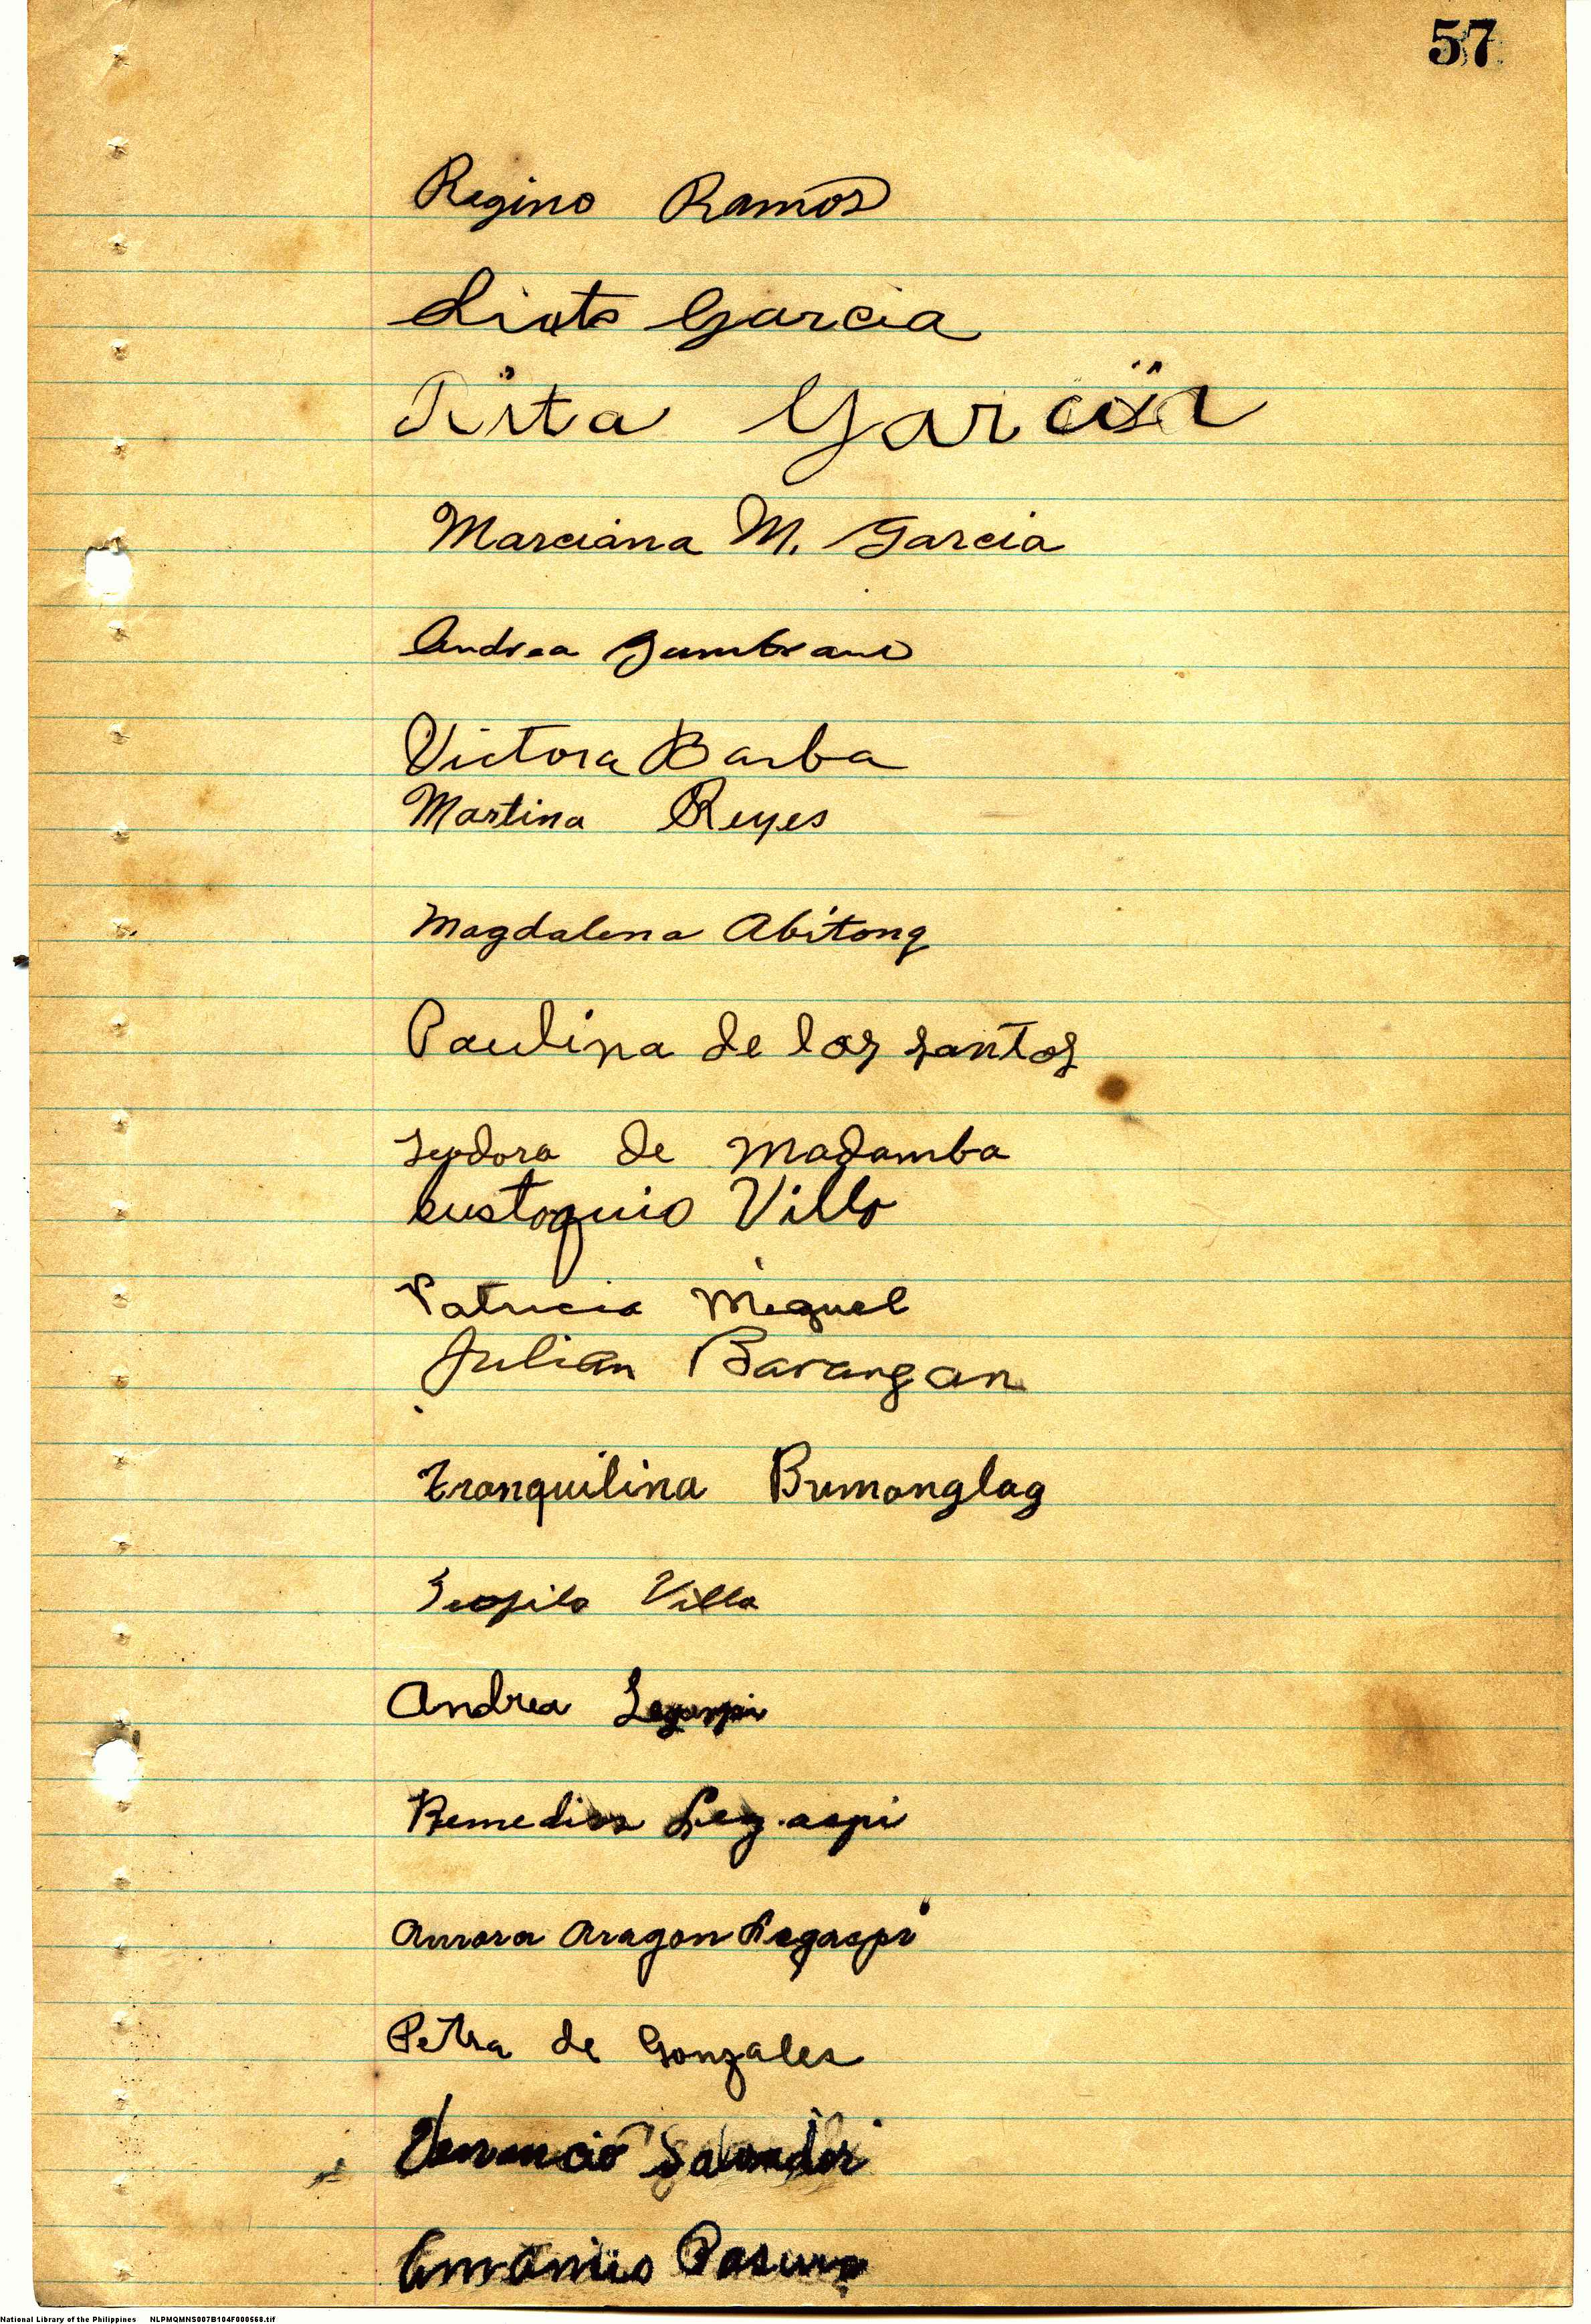 57
Regino Ramos
Sixto Garcia
Rita Garcia
Marciana M. Garcia
Andrea
Victora Barba
Martina Reyes
Magdalena Abitong
Paulina de los Santos
Isydora de Madamba
Eustoquio Villa
Patricia Miguel
Julian Barangan
Tranquilina Bumanglag
Teopilo Villa
Andrea Legaspi
Remedios Legaspi
Aurora Aragon Legaspi
Petra de Gonzales
Venancio Salvador
National Library of the Philippines NLPMQMNS007B104F000568.tif